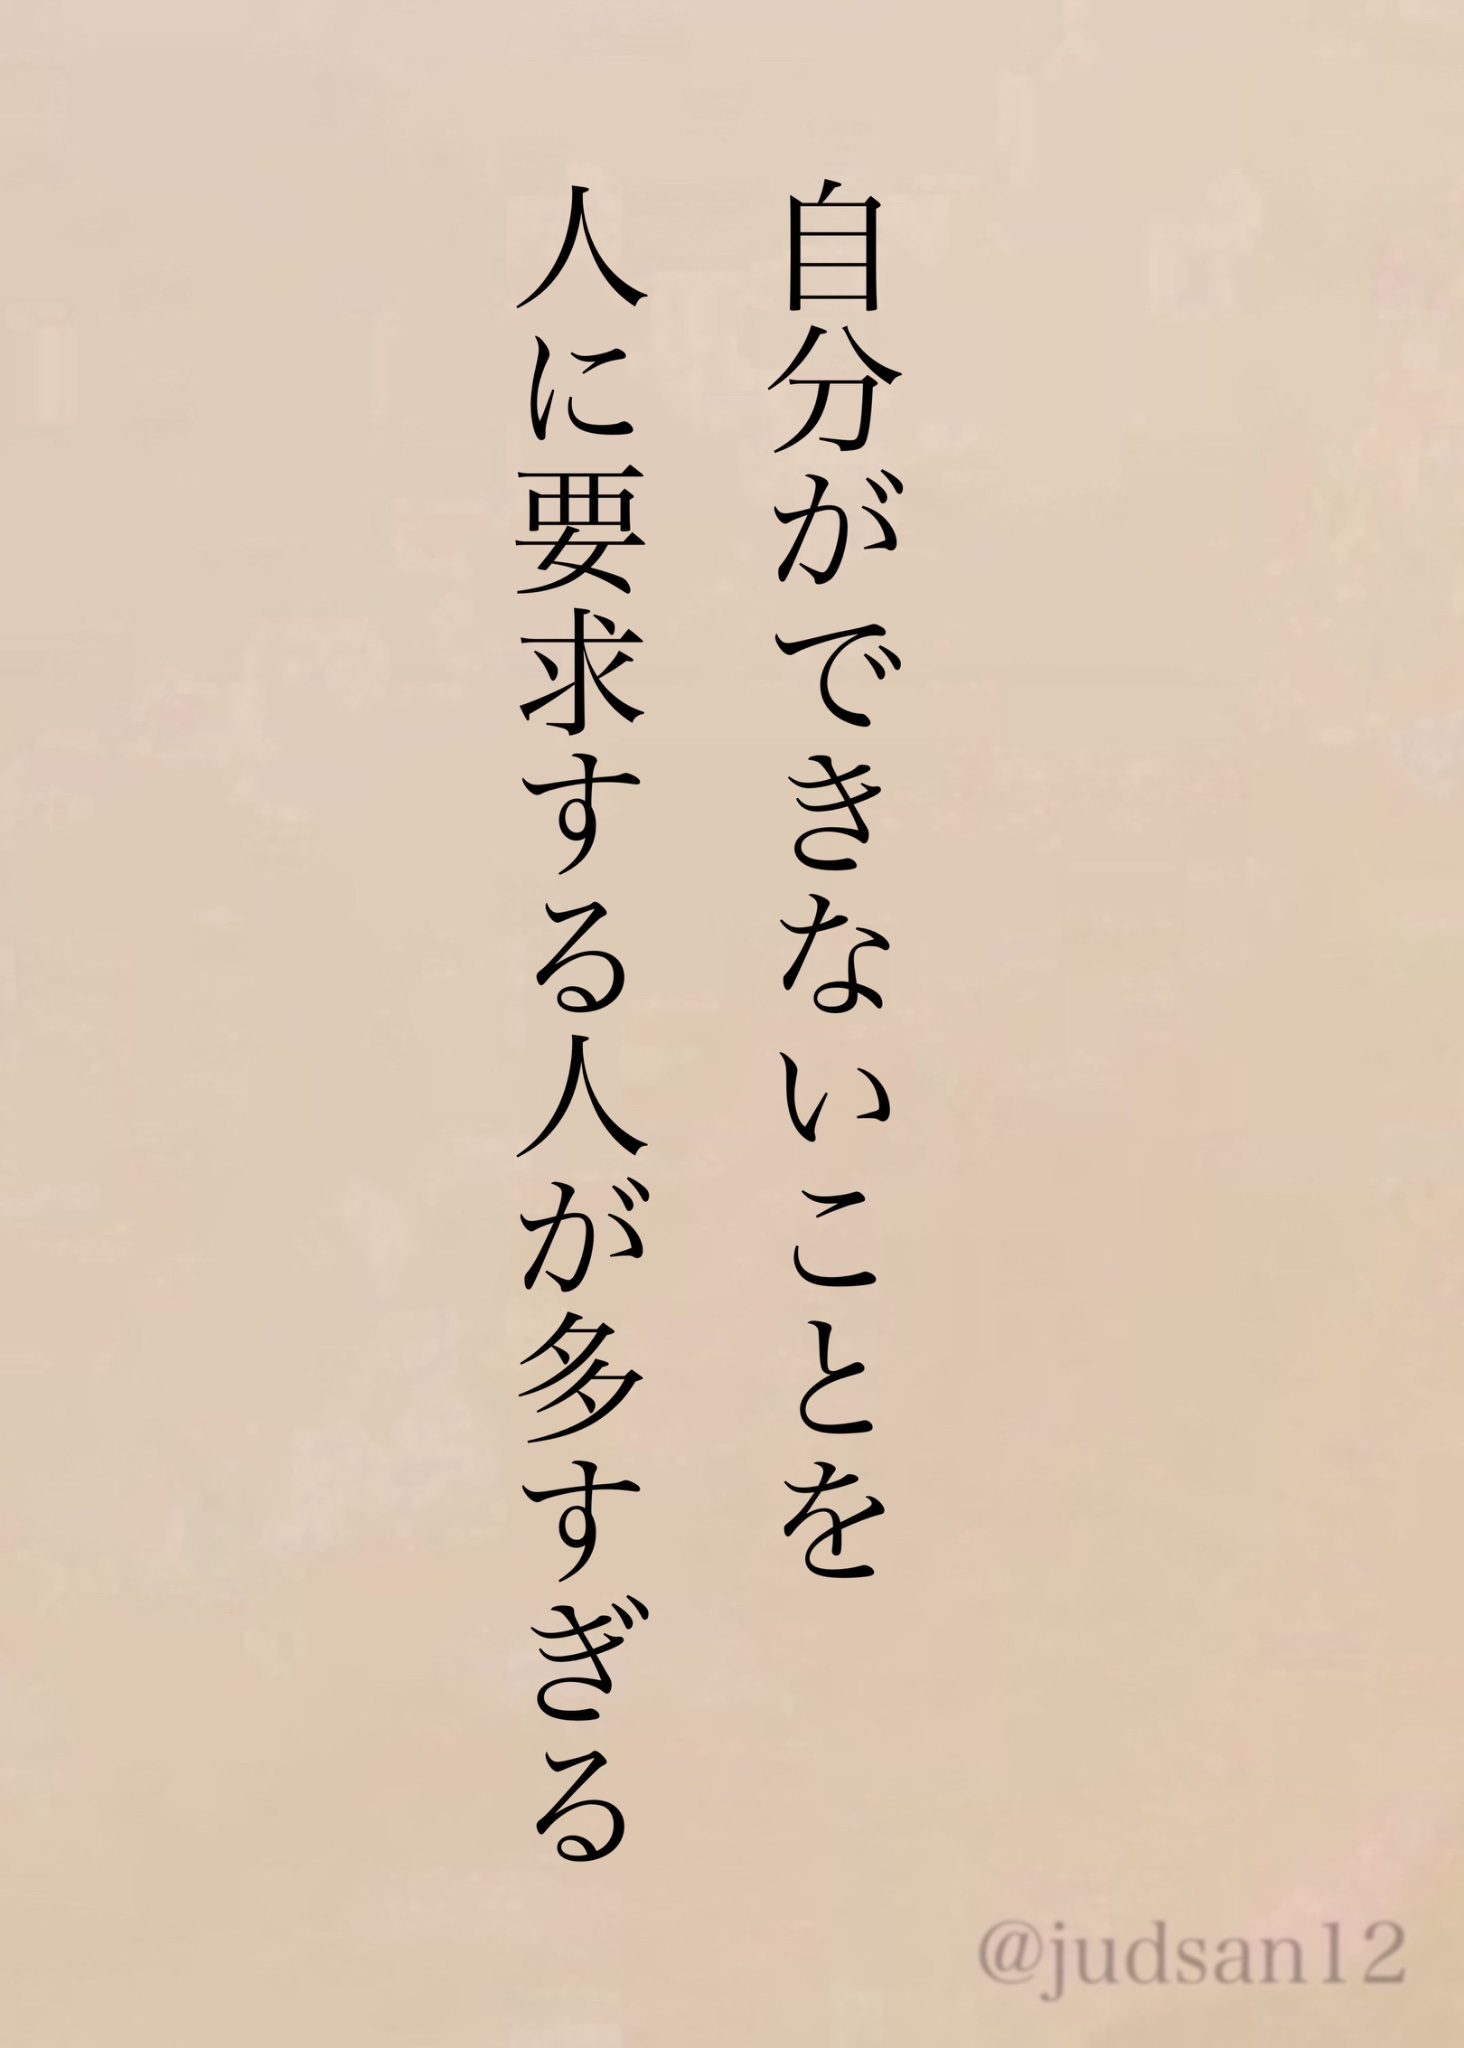 自分ができないことを
人に要求する人が多すぎる
@judsan12